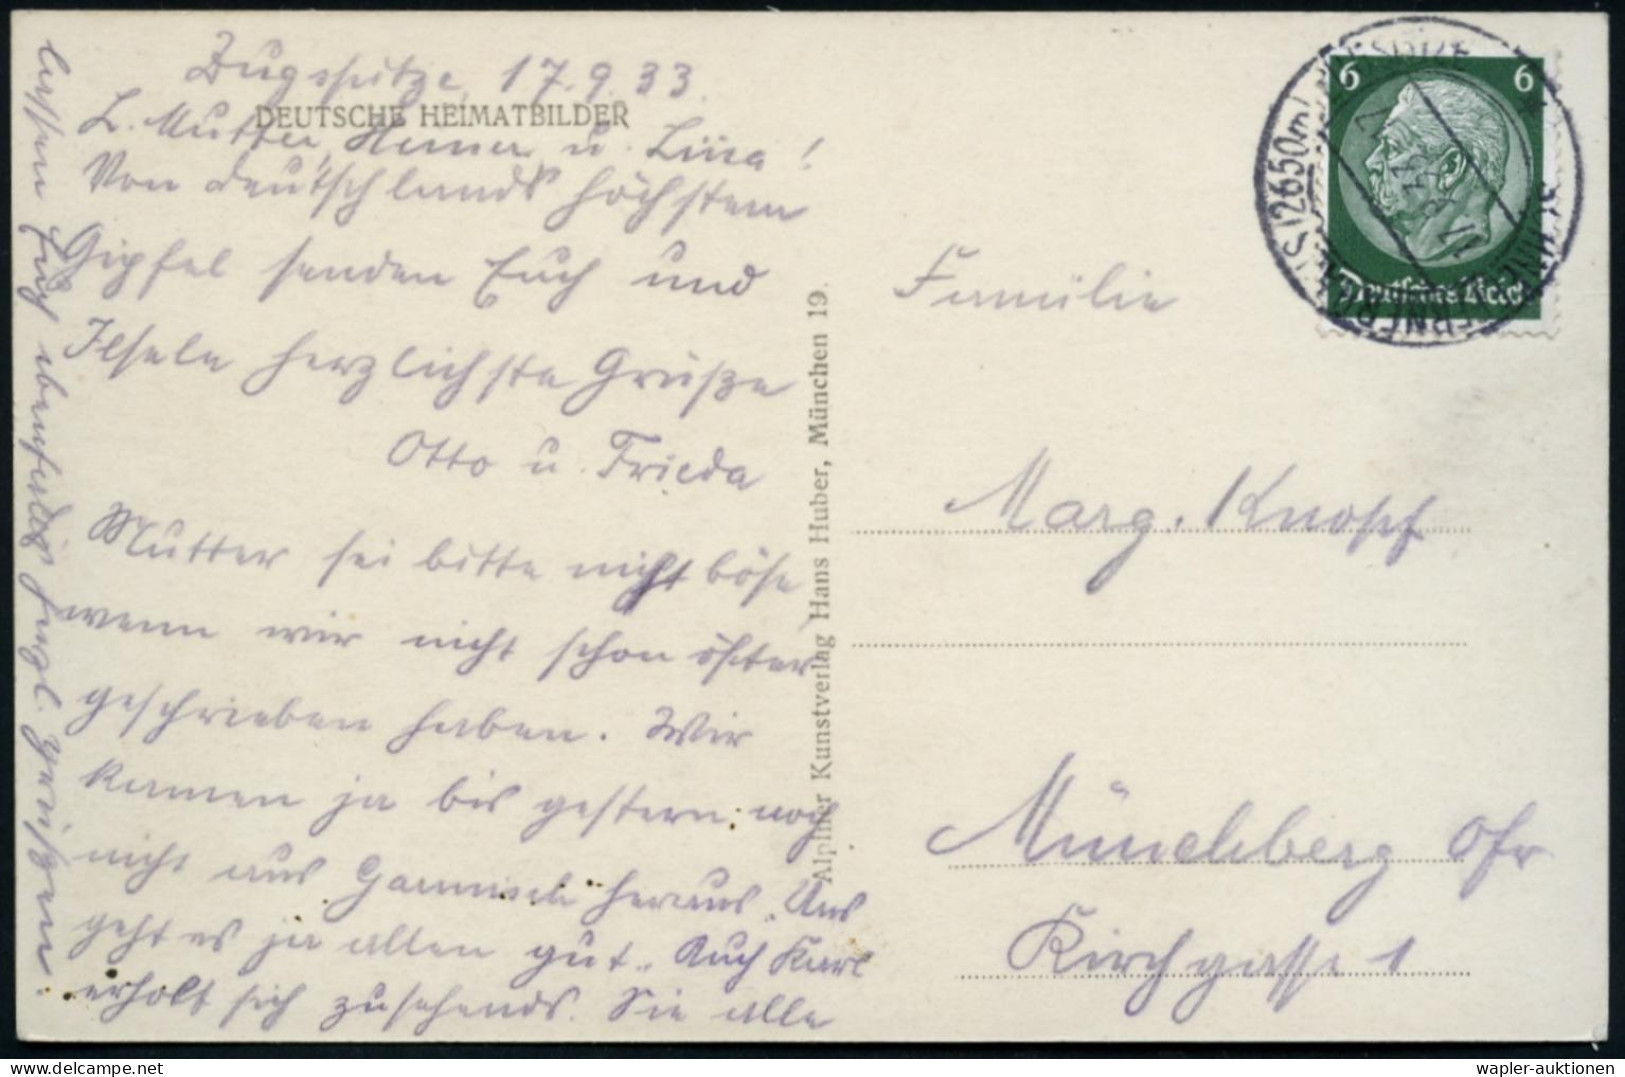 Zugspitze, 17.9.33.
DEUTSCHE HEIMATBILDER
L. Mutter, Heiner u. Lina!
Von Deutschlands höchstem
Gipfel senden Euch und
Ilsele herzlichste Grüße
Otto u. Frieda
Mutter sei bitte nicht böse
wenn wir nicht schon öfter
geschrieben haben. Wir
kamen ja bis gestern noch
nicht aus Garmisch heraus. Uns
geht es ja allen gut. Auch Karl
erholt sich zusehends. Sie alle
lassen Euch ebenfalls herzl. grüßen.
Alpiner Kunstverlag Hans Huber, München 19.
6 6
Deutsches Reich
(2650m)
17.9.33
Familie
Marg. Knopf
Münchberg Ofr
Kirchgasse 1
wapler-auktionen